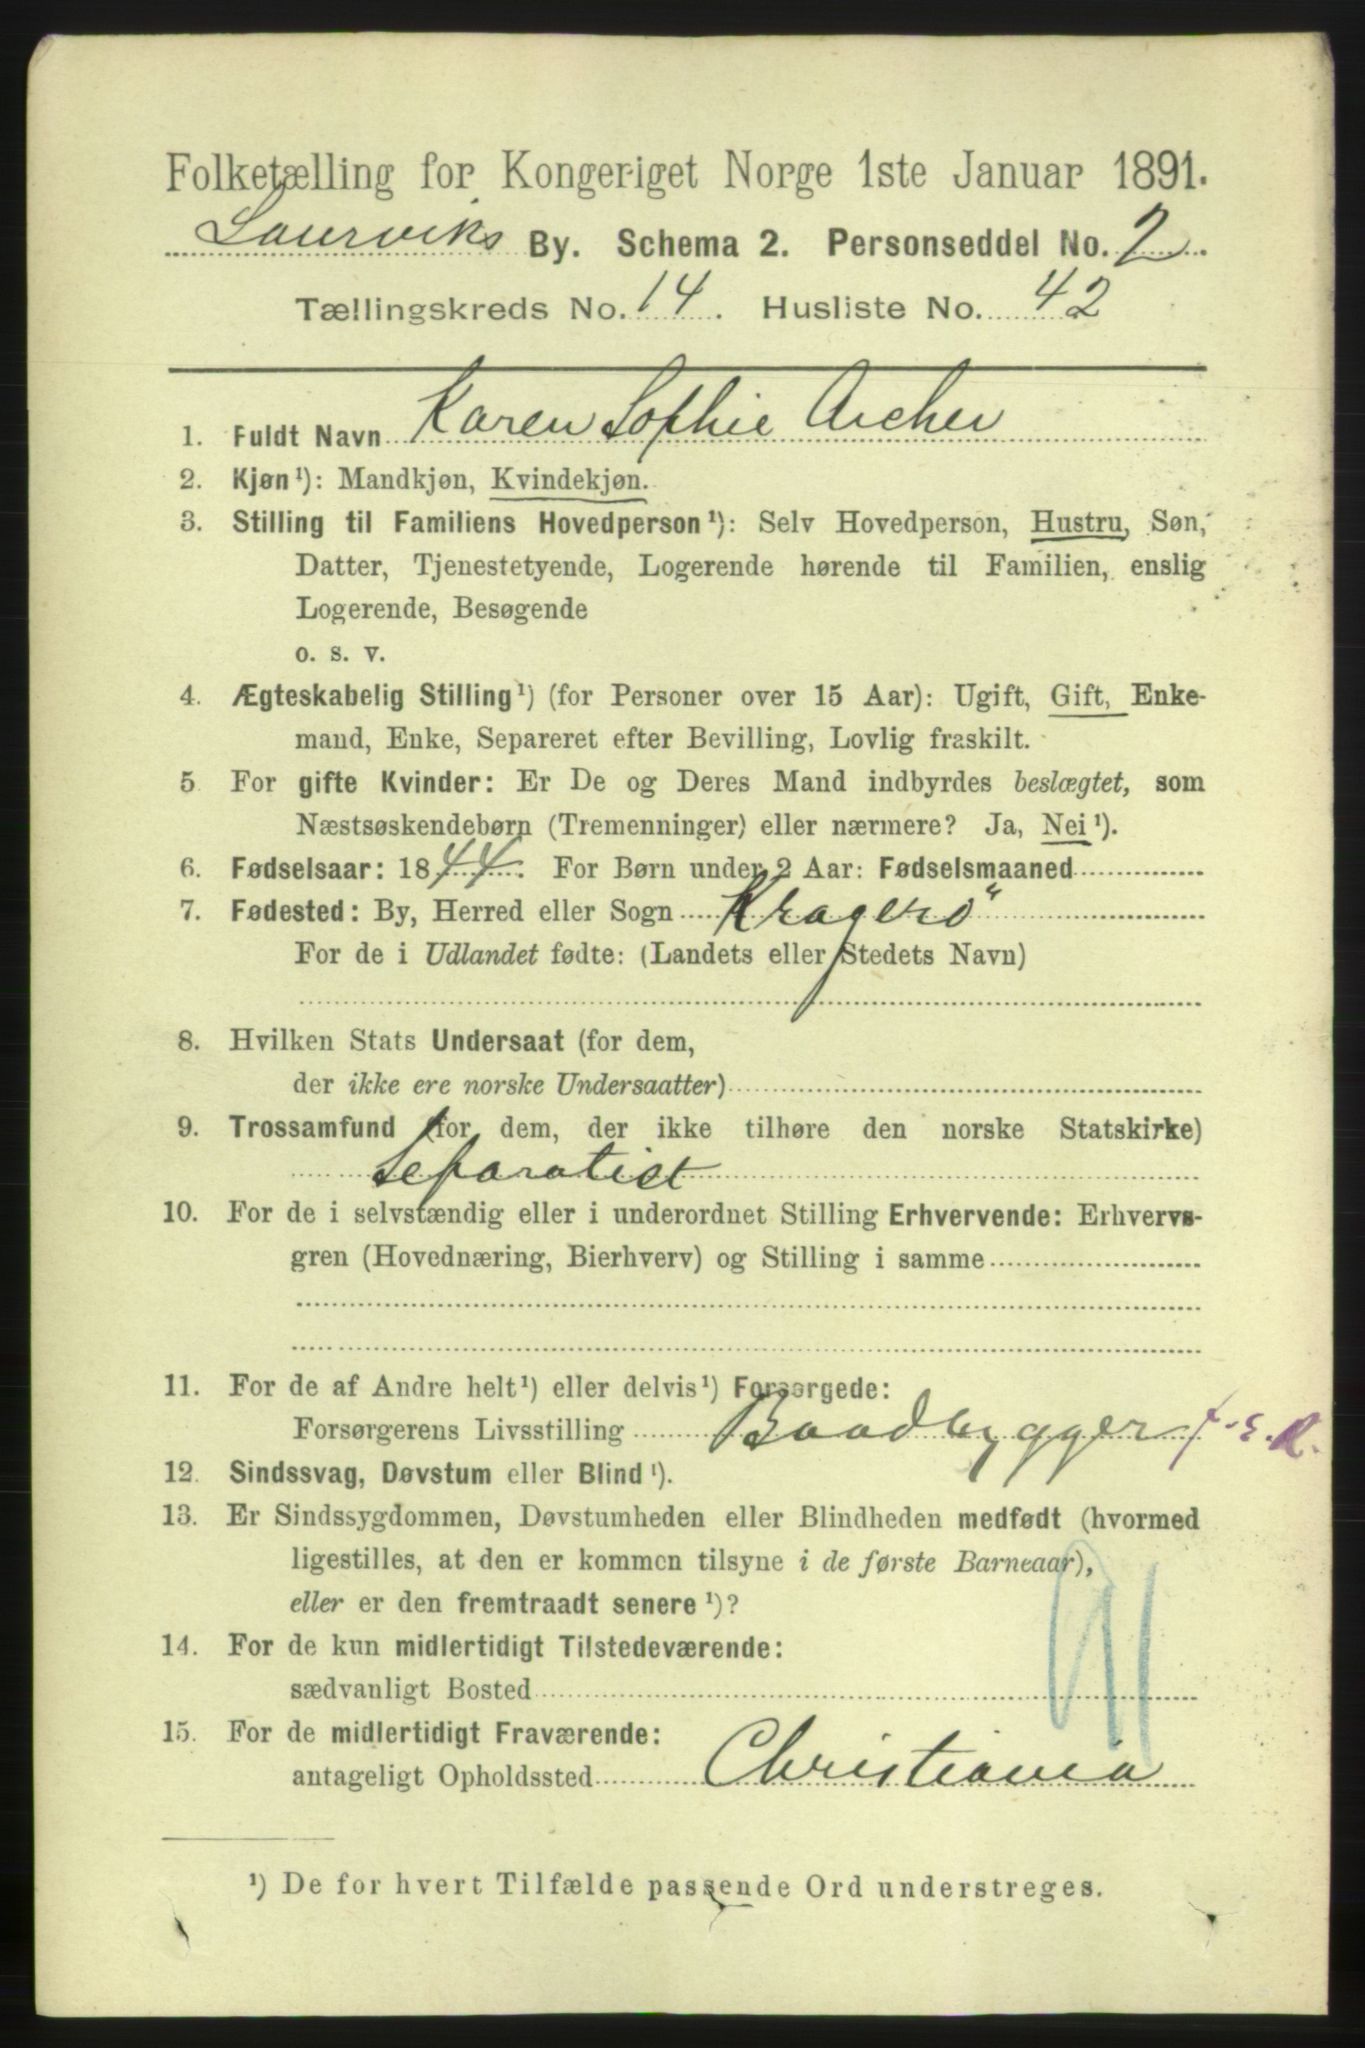 Folketælling for Kongeriget Norge 1ste Januar 1891.
Laurviks By. Schema 2. Personseddel No. 2.
Tællingskreds No. 14. Husliste No. 42
1. Fuldt Navn Karen Sophie Archer
2. Kjøn¹): Mandkjøn, Kvindekjøn.
3. Stilling til Familiens Hovedperson¹): Selv Hovedperson, Hustru, Søn,
Datter, Tjenestetyende, Logerende hørende til Familien, enslig
Logerende, Besøgende
o. s. v.
4. Ægteskabelig Stilling¹) (for Personer over 15 Aar): Ugift, Gift, Enke-
mand, Enke, Separeret efter Bevilling, Lovlig fraskilt.
5 For gifte Kvinder: Er De og Deres Mand indbyrdes beslægtet, som
Næstsøskendebørn (Tremenninger) eller nærmere? Ja, Nei¹).
6. Fødselsaar: 1844. For Børn under 2 Aar: Fødselsmaaned
7. Fødested: By, Herred eller Sogn Kragerö
For de i Udlandet fødte: (Landets eller Stedets Navn)
8. Hvilken Stats Undersaat (for dem,
der ikke ere norske Undersaatter)
9. Trossamfund (for dem, der ikke tilhøre den norske Statskirke)
Separatist
10. For de i selvstændig eller i underordnet Stilling Erhvervende: Erhvervs-
gren (Hovednæring, Bierhverv) og Stilling i samme
11. For de af Andre helt¹) eller delvis¹) Forsørgede:
Forsørgerens Livsstilling Baadbygger f. e. R.
12. Sindssvag, Døvstum eller Blind¹).
13. Er Sindssygdommen, Døvstumheden eller Blindheden medfødt (hvormed
ligestilles, at den er kommen tilsyne i de første Barneaar),
eller er den fremtraadt senere¹)?
14. For de kun midlertidigt Tilstedeværende:
sædvanligt Bosted
15. For de midlertidigt Fraværende:
antageligt Opholdssted Christiania
¹) De for hvert Tilfælde passende Ord understreges.